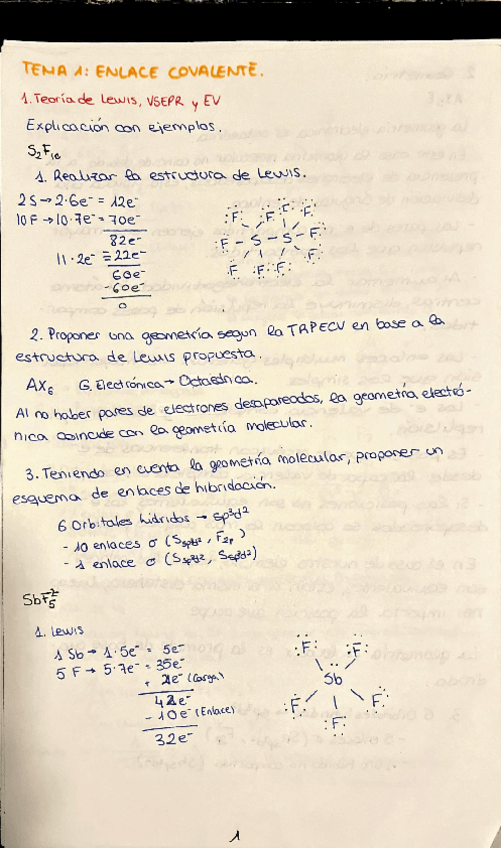 TEMA 1: ENLACE COVALENTE.
1. Teoría de Lewis, VSEPR y EV
Explicación con ejemplos.
S₂F₁₀
1. Realizar la estructura de Lewis.
2S → 2·6e⁻ = 12e⁻
10F → 10·7e⁻ = 70e⁻
82e⁻
11·2e⁻ = 22e⁻
60e⁻
-60e⁻
0
F F F F
F - S - S - F
F F F F
2. Proponer una geometría segun la TRPECV en base a la
estructura de Lewis propuesta.
AX₆ G. Electrónica → Octaédrica.
Al no haber pares de electrones desapareados, la geometría electró-
nica coincide con la geometría molecular.
3. Teniendo en cuenta la geometría molecular, proponer un
esquema de enlaces de hibridación.
6 Orbitales híbridos → sp³d²
- 10 enlaces σ (Ssp³d², F2p)
- 1 enlace σ (Ssp³d², Ssp³d²)
SbF₅²⁻
1. Lewis
1 Sb → 1·5e⁻ = 5e⁻
5 F → 5·7e⁻ = 35e⁻
+ 2e⁻ (Carga)
42e⁻
- 10e⁻ (Enlace)
32e⁻
F F
Sb
F F F
1